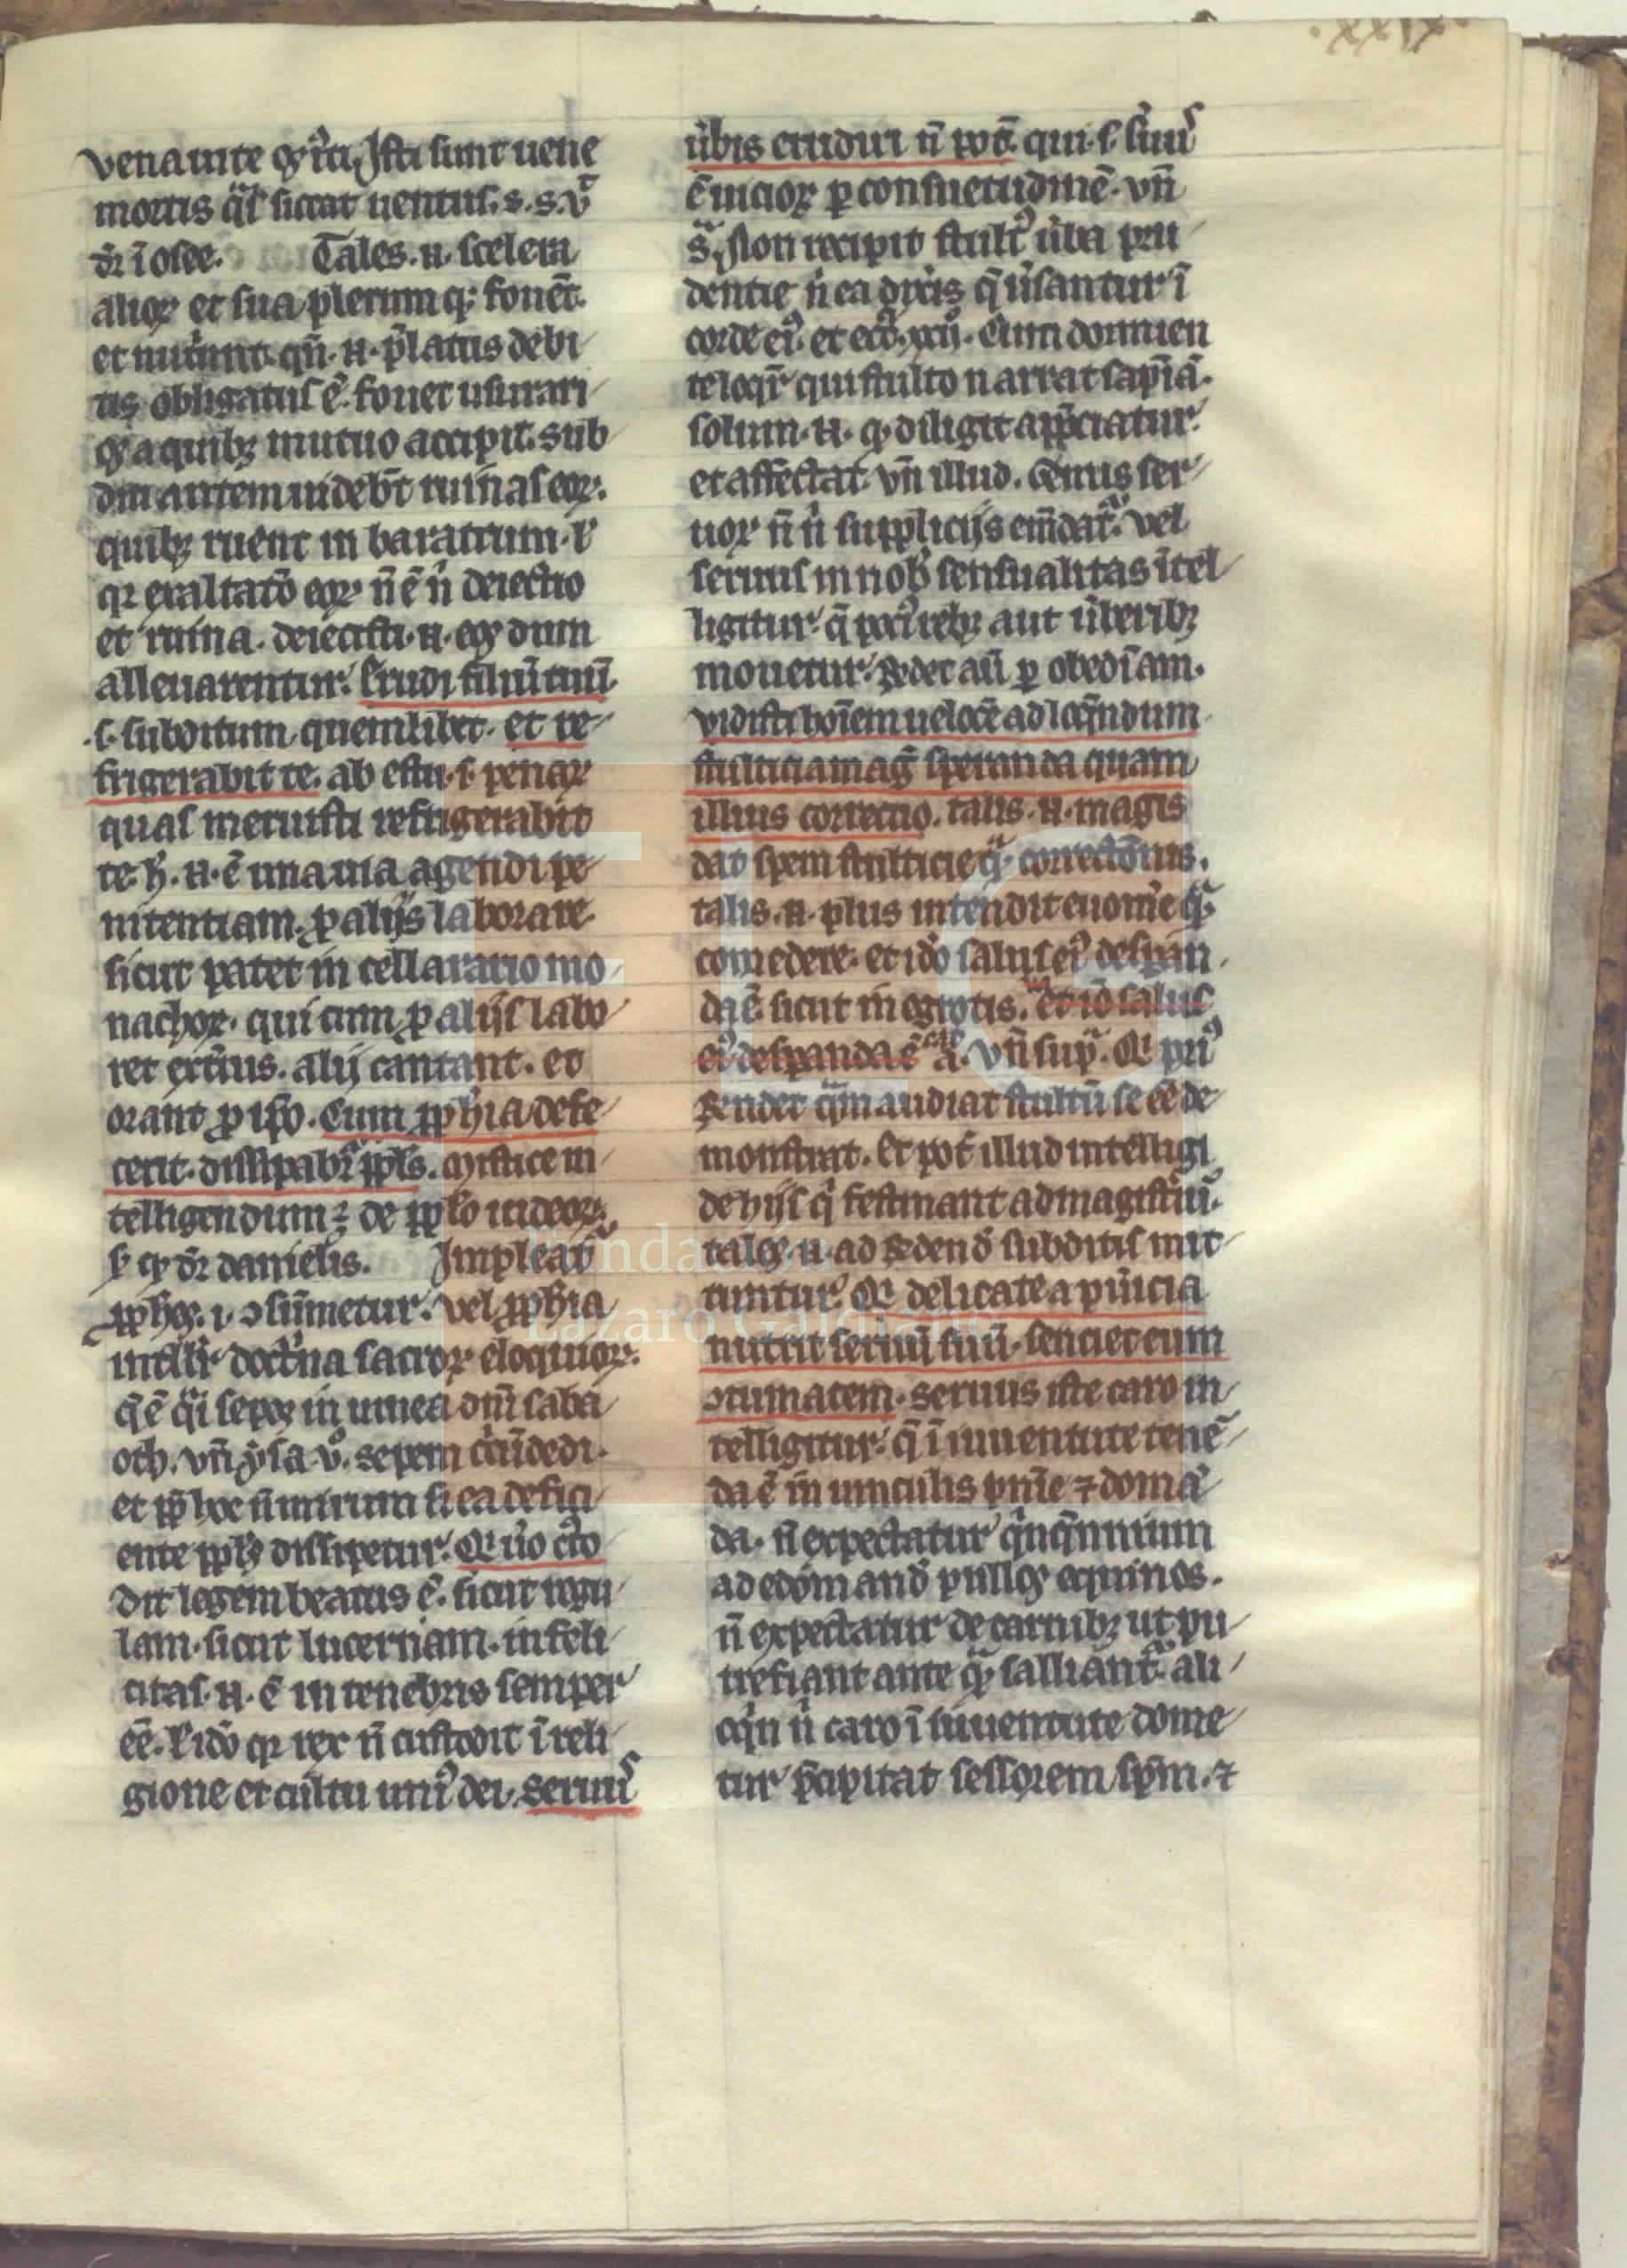 .xxix.
venaute gr̃ci. Isti sunt uene
mortis q̃l siccat uentus. s. s. v̾
dr̃ ĩ osee. Tales .n. scelera
alioꝝ et sua plerumq; fouẽt.
et nutriunt. qñ .n. p̃latus debi
tis obligatus ẽ. fouet usurari
os a quibꝫ mutuo accipit. sub
diti autem uidebũt ruinas eoꝝ.
quibꝫ ruent in baratrum. ł
qꝛ exaltatõ eoꝝ ñ ẽ ñ deiectio
et ruina. deiecisti .n. eos dum
alleuarentur. Erudi filiũ tuũ.
.s. subditum quemlibet. et re
frigerabit te. ab estu .s. penaꝝ
quas meruisti refrigerabit
te. h̾ .n. ẽ una uia agendi pe
nitentiam. ꝓ alijs laborare.
sicut patet in cellarario mo
nachoꝝ. qui cum ꝓ alijs labo
ret exterius. alij cantant. et
orant ꝓ ipso. Cum ꝓph̾ia defe
cerit. dissipabr̃ ppl̃s. mistice in
telligendum ꝫ de pplo iudeoꝝ.
s̾ ꝙ dr̃ danielis. Impleat̾
ꝓph̾ia .i. ↄsũmetur. vel ꝓph̾ia
intell̃r doctĩna sacroꝝ eloquioꝝ.
q̃ ẽ q̃i sepes in uinea dñi saba
oth. vñ ysa. v̊. sepem circũdedi.
et ꝓp̃ hoc ñ mirum si ea defici
ente ppl̃s dissipetur. Qĩ uo cꝰto
dit legem beatus ẽ. sicut regu
lam. sicut lucernam. infeli
citas .n. ẽ in tenebris semper
eẽ. ł iđo qꝛ rex ñ custodit ĩ reli
gione et cultu unĩꝰ dei. seruuˢ
ũbis erudiri ñ potẽ. qui .s. seruꝰ
ẽ uicioꝝ ꝑ consuetudinẽ. vñ
sᷓ. Non recipit stultꝰ ũba pru
dentie ñ ea dixeris q̃ ũsantur ĩ
corde eiꝰ. et ecc̃i. xxij. Cum dormien
te loq̃r qui stulto narrat sapĩam.
solum .n. ꝙ diligit ap̃ciatur
et affectat. vñ illud. Genus ser
uoꝝ ñ ñ supplicijs em̃dat̃. vel
seruus in nob̾ sensualitas ĩtel
ligitur. q̃ pociꝰ rebꝫ aut ũberibꝫ
mouetur. r̃ndet aũ ꝑ obedĩam.
vidisti hoĩem uelocẽ ad loq̃ndum
stulticia mag̾ speranda quam
illius correctio. talis .n. magis
dat spem stulticie q̃ᷓ correctõnis.
talis .n. plus intendit euomẽ q̃ᷓ
comedere. et iđo salus eiꝰ despan
da ẽ. sicut in egrotis. et iđo salus
eiꝰ despanda ẽ. vñ sup̃. Qĩ priꝰ
r̃ndet q̃m audiat stultũ se eẽ de
monstrat. Et pot̃ illud intelligi
de hijs q̃ festinant ad magist̃iũ.
tales .n. ad r̃dendũ subditis mit
tuntur. Qĩ delicate a puericia
nutrit seruũ suũ. senciet eum
ↄtumacem. seruus iste caro in
telligitur. q̃ ĩ iuuentute tenẽ
da ẽ in uinculis pnĩe ⁊ domã
da. ñ expectatur q̃nq̃nnium
ad edomandũ pullos equinos.
ñ expectatur de carnibꝫ ut pu
trefiant ante q̃ᷓ salliant̃. ali
oq̃n ñ caro ĩ iuuentute dome
tur p̃cipitat sessorem sp̃m. ⁊